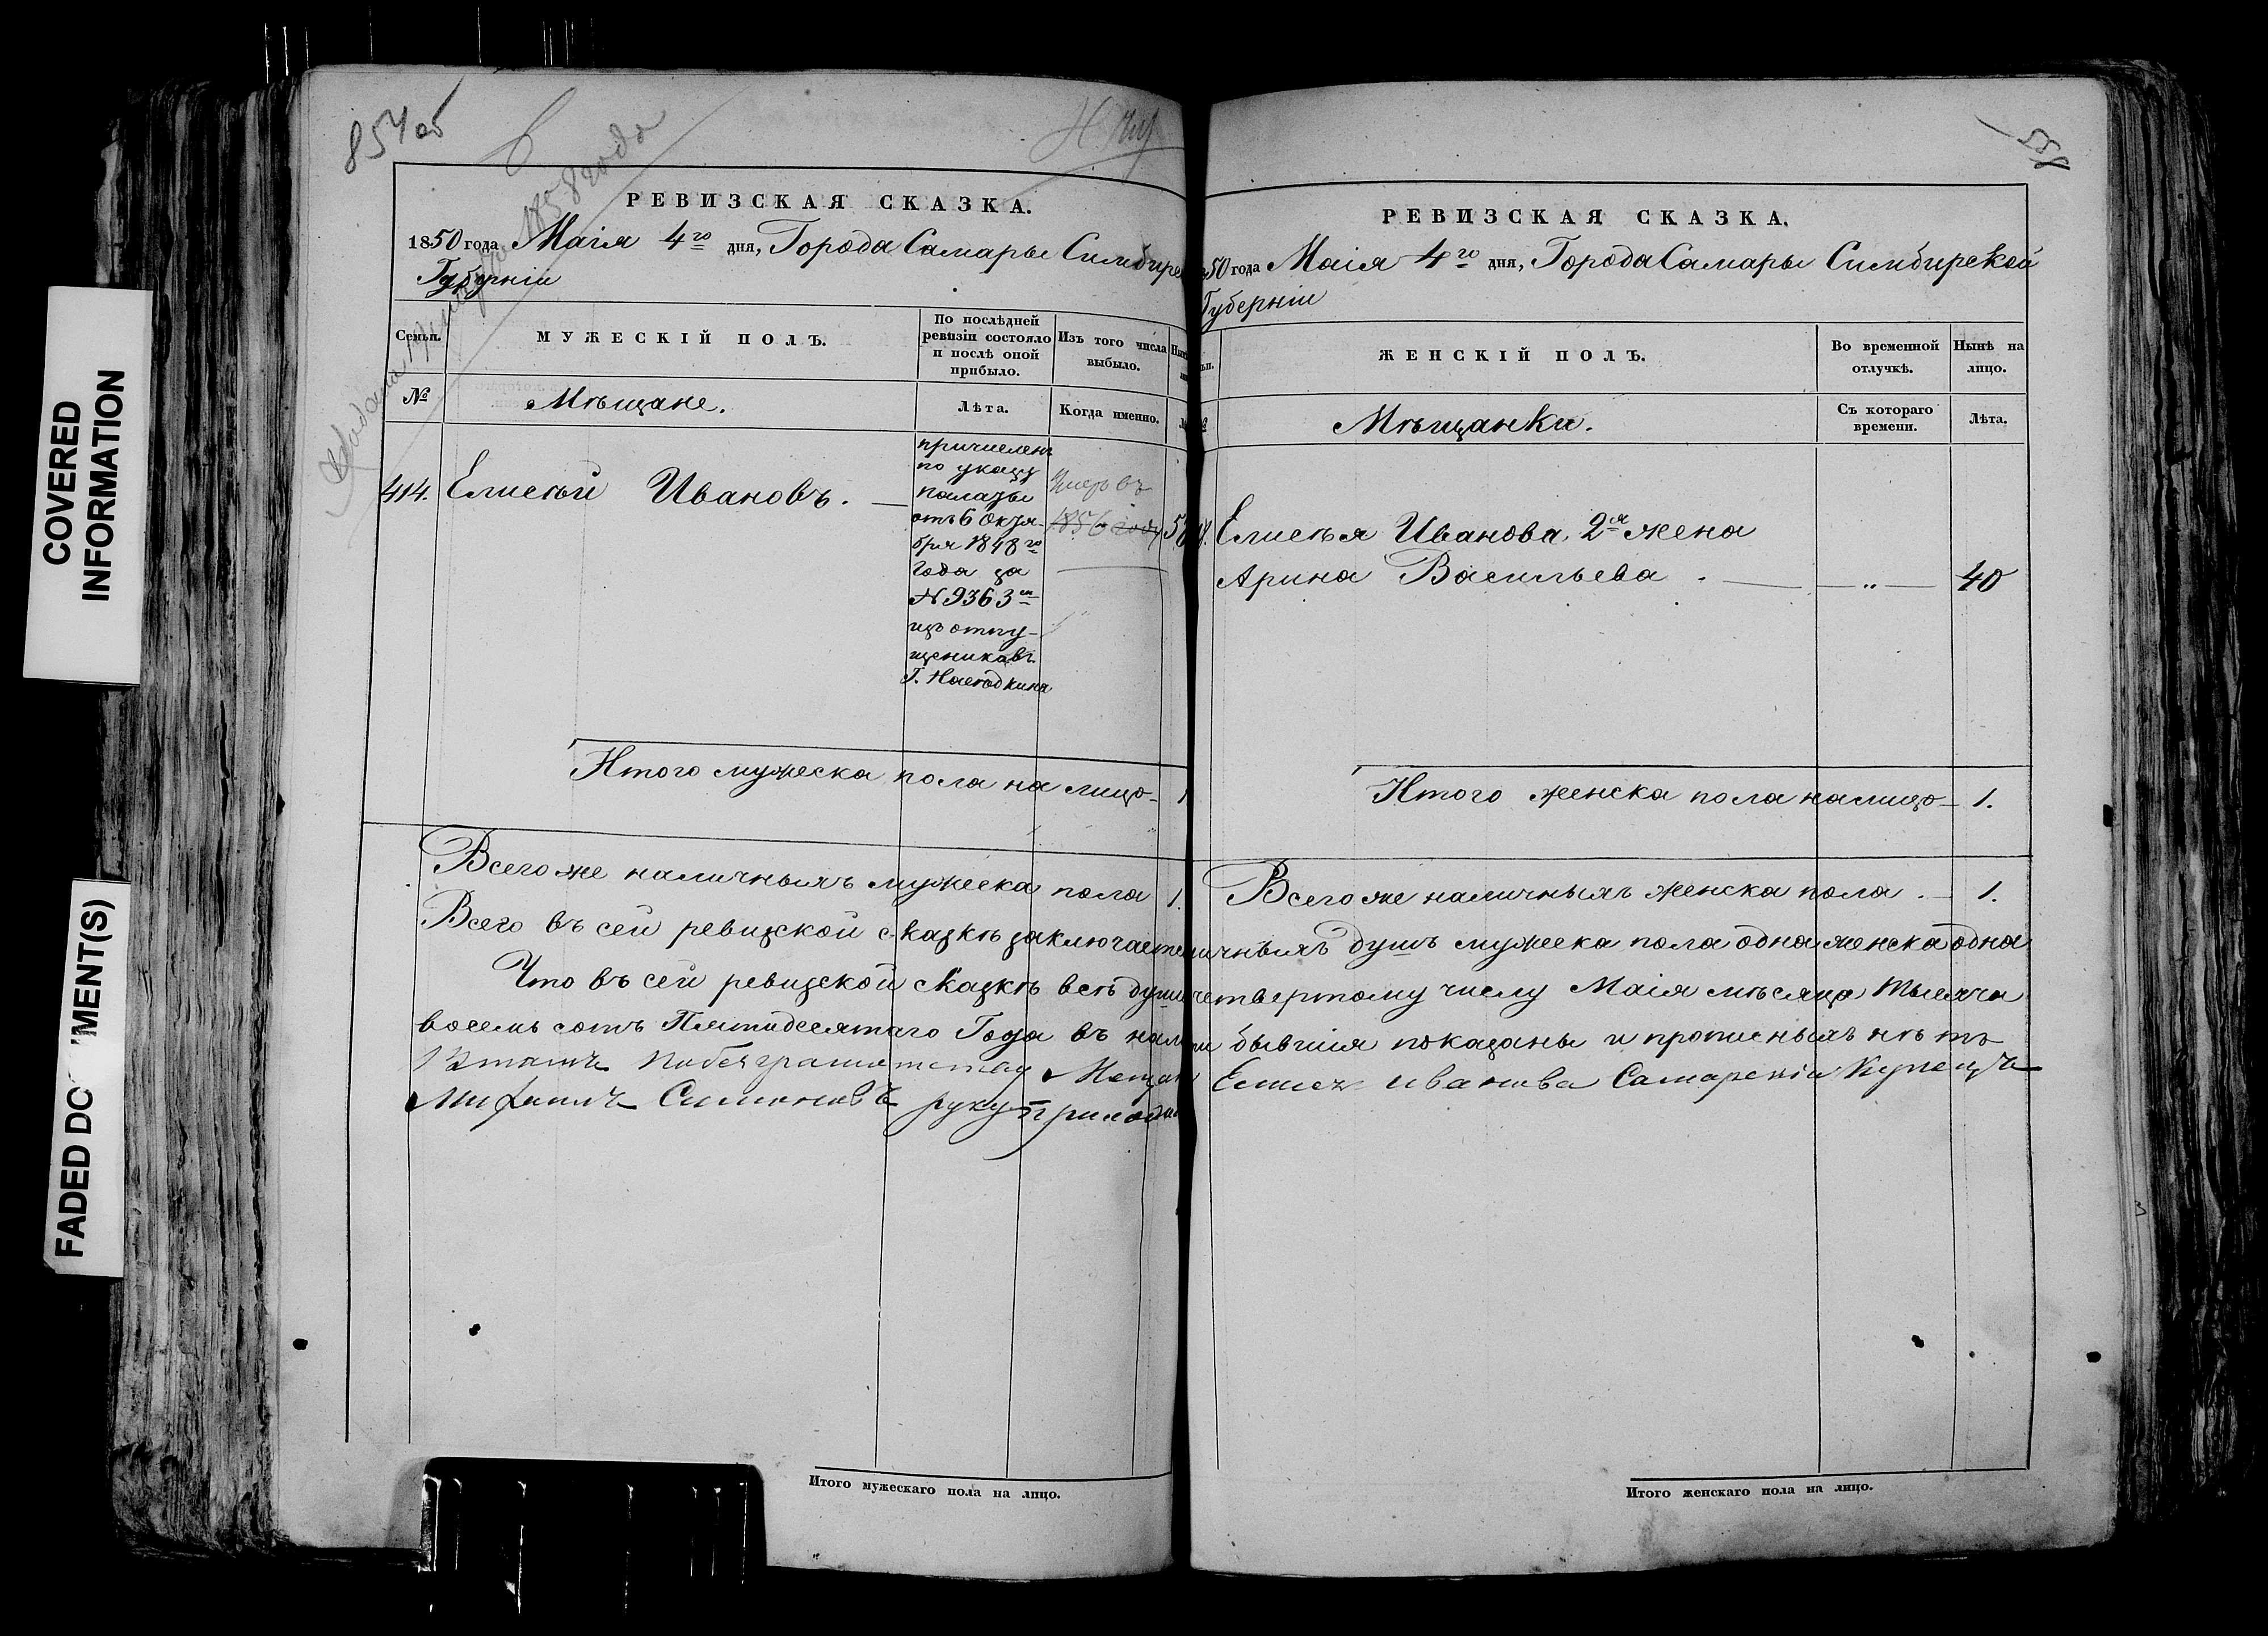 COVERED
INFORMATION
FADED DOCUMENT(S)
854 об
РЕВИЗСКАЯ СКАЗКА.
1850 года Маія 4го дня, Города Самары Симбирс
Губерніи
Семьи.
МУЖЕСКІЙ ПОЛЪ.
По послѣдней
ревизіи состояло
и послѣ оной
прибыло.
Изъ того числа
выбыло.
№
Мѣщане.
Лѣта.
Когда именно.
414.
Елисѣй Ивановъ.
причисленъ
по указу
палаты
отъ 6 Октя-
бря 1848го
года за
№ 9363м
изъ отпу-
щениковъ
Г.
Умеръ въ
1856 году
Итого мужеска пола на лицо 1
Всего же наличныхъ мужеска пола 1.
Всего въ сей ревизской сказкѣ заключаетс
Что въ сей ревизской сказкѣ всѣ души
восемь сотъ Пятидесятаго Года въ нали
Мещан
Симоновъ руку прилож
Итого мужескаго пола на лицо.
855
РЕВИЗСКАЯ СКАЗКА.
50 года Маія 4го дня, Города Самары Симбирской
Губерніи
ЖЕНСКІЙ ПОЛЪ.
Во временной
отлучкѣ.
Нынѣ на
лицо.
Мѣщанки.
Съ котораго
времени.
Лѣта.
Елисѣя Иванова 2я жена
Арина Васильева . — „ — 40
Итого женска пола налицо 1.
Всего же наличныхъ женска пола . 1.
ичныхъ душъ мужеска пола одна женска одна
четвертому числу Маія мѣсяца Тысяча
бывшія показаны и прописныхъ нѣтъ
Елисея иванова Самарскій Купецъ
Итого женскаго пола на лицо.